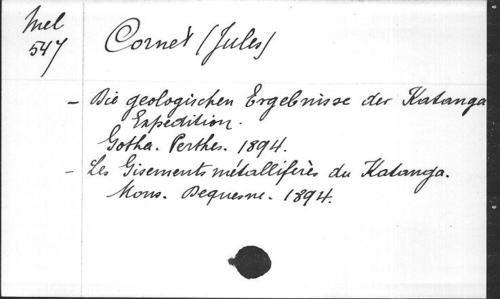 Mel
547
Cornet (Jules)
- Die geologischen Ergebnisse der Katanga
Expedition.
Gotha. Perthes. 1894.
- Les Gisements métallifères du Katanga.
Mons. Dequesne. 1894.